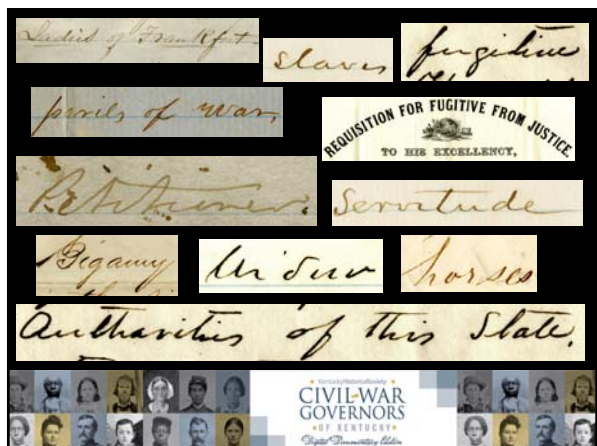 Ladies of Frankfort.
slaves
fugitive
perils of war,
REQUISITION FOR FUGITIVE FROM JUSTICE.
TO HIS EXCELLENCY,
Petitioner.
Servitude
Bigamy
Widow
horses
Authorities of this State.
Kentucky Historical Society
CIVIL WAR
GOVERNORS
OF KENTUCKY
Digital Documentary Edition